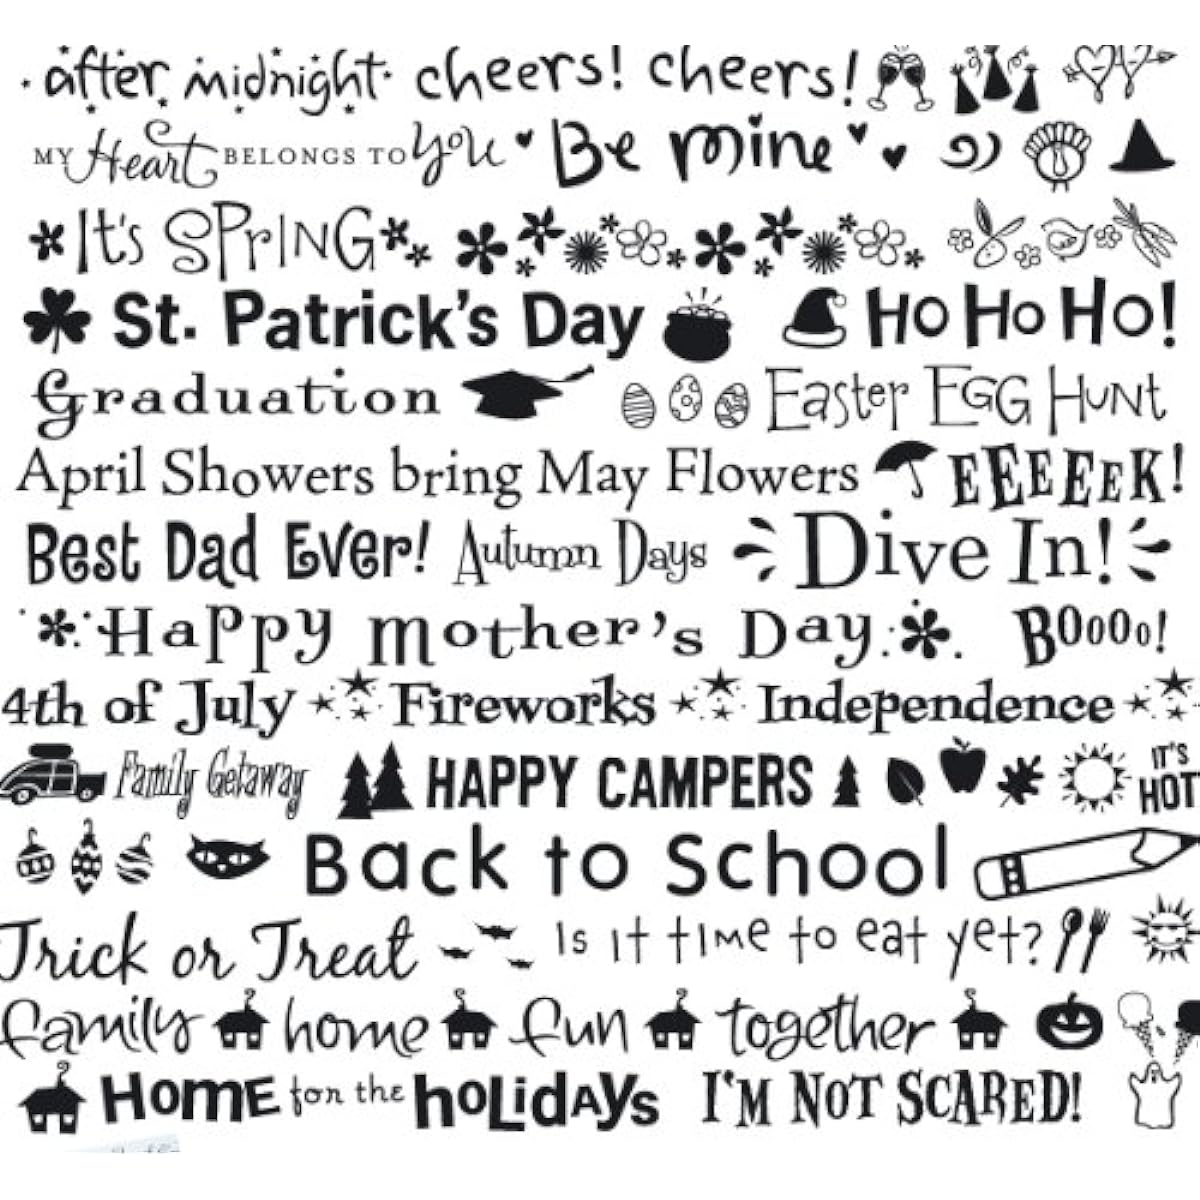 after midnight cheers! cheers!
MY Heart BELONGS TO YOU Be mine
It's SPrING
St. Patrick's Day HO HO HO!
Graduation Easter EGG HUNT
April Showers bring May Flowers EEEEEEK!
Best Dad Ever! Autumn Days Dive In!
Happy mother's Day BOOOO!
4th of July Fireworks Independence
Family Getaway HAPPY CAMPERS IT'S HOT
Back to School
Trick or Treat Is it time to eat yet?
family home fun together
HOME for the HOLIDAYS I'M NOT SCARED!